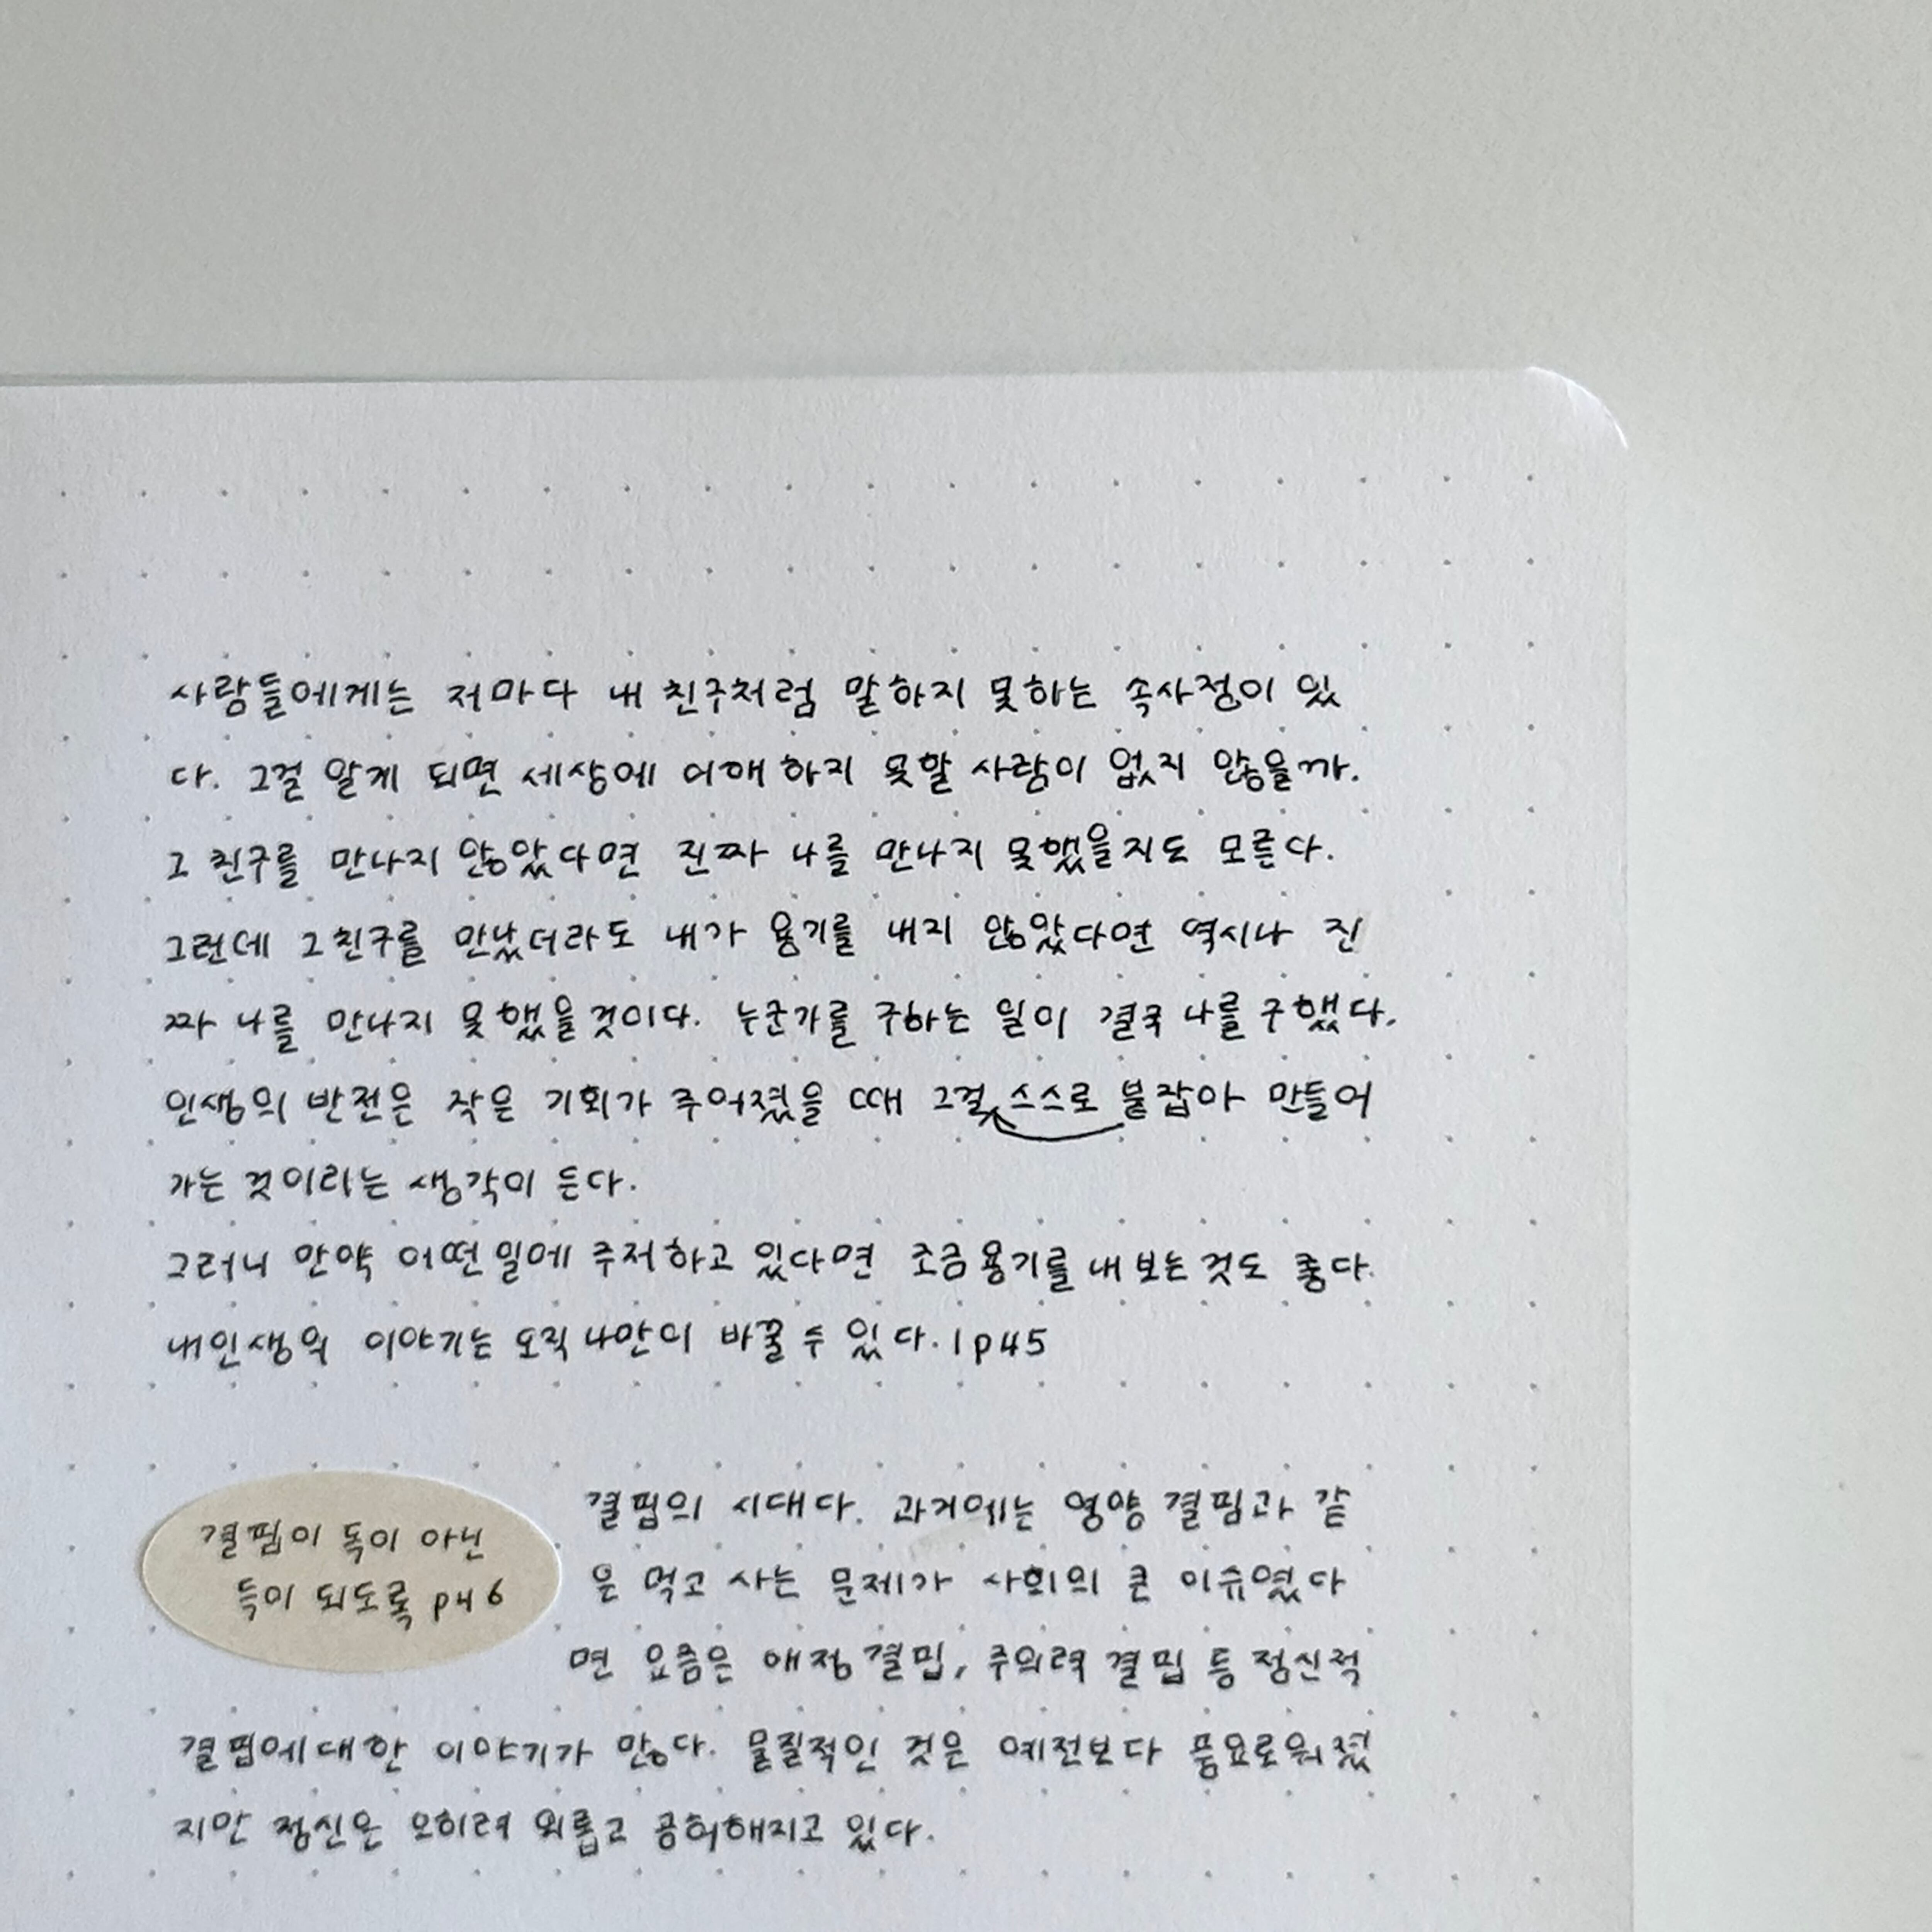 사람들에게는 저마다 내 친구처럼 말하지 못하는 속사정이 있
다. 그걸 알게 되면 세상에 이해 하지 못할 사람이 없지 않을까.
그 친구를 만나지 않았다면 진짜 나를 만나지 못했을지도 모른다.
그런데 그 친구를 만났더라도 내가 용기를 내지 않았다면 역시나 진
짜 나를 만나지 못했을 것이다. 누군가를 구하는 일이 결국 나를 구했다.
인생의 반전은 작은 기회가 주어졌을 때 그걸 스스로 붙잡아 만들어
가는 것이라는 생각이 든다.
그러니 만약 어떤 일에 주저하고 있다면 조금 용기를 내 보는 것도 좋다.
내 인생의 이야기는 오직 나만이 바꿀 수 있다. | p45
결핍이 독이 아닌
득이 되도록 p46
결핍의 시대다. 과거에는 영양 결핍과 같
은 먹고 사는 문제가 사회의 큰 이슈였다
면 요즘은 애정 결핍, 주의력 결핍 등 정신적
결핍에 대한 이야기가 많다. 물질적인 것은 예전보다 풍요로워졌
지만 정신은 오히려 외롭고 공허해지고 있다.